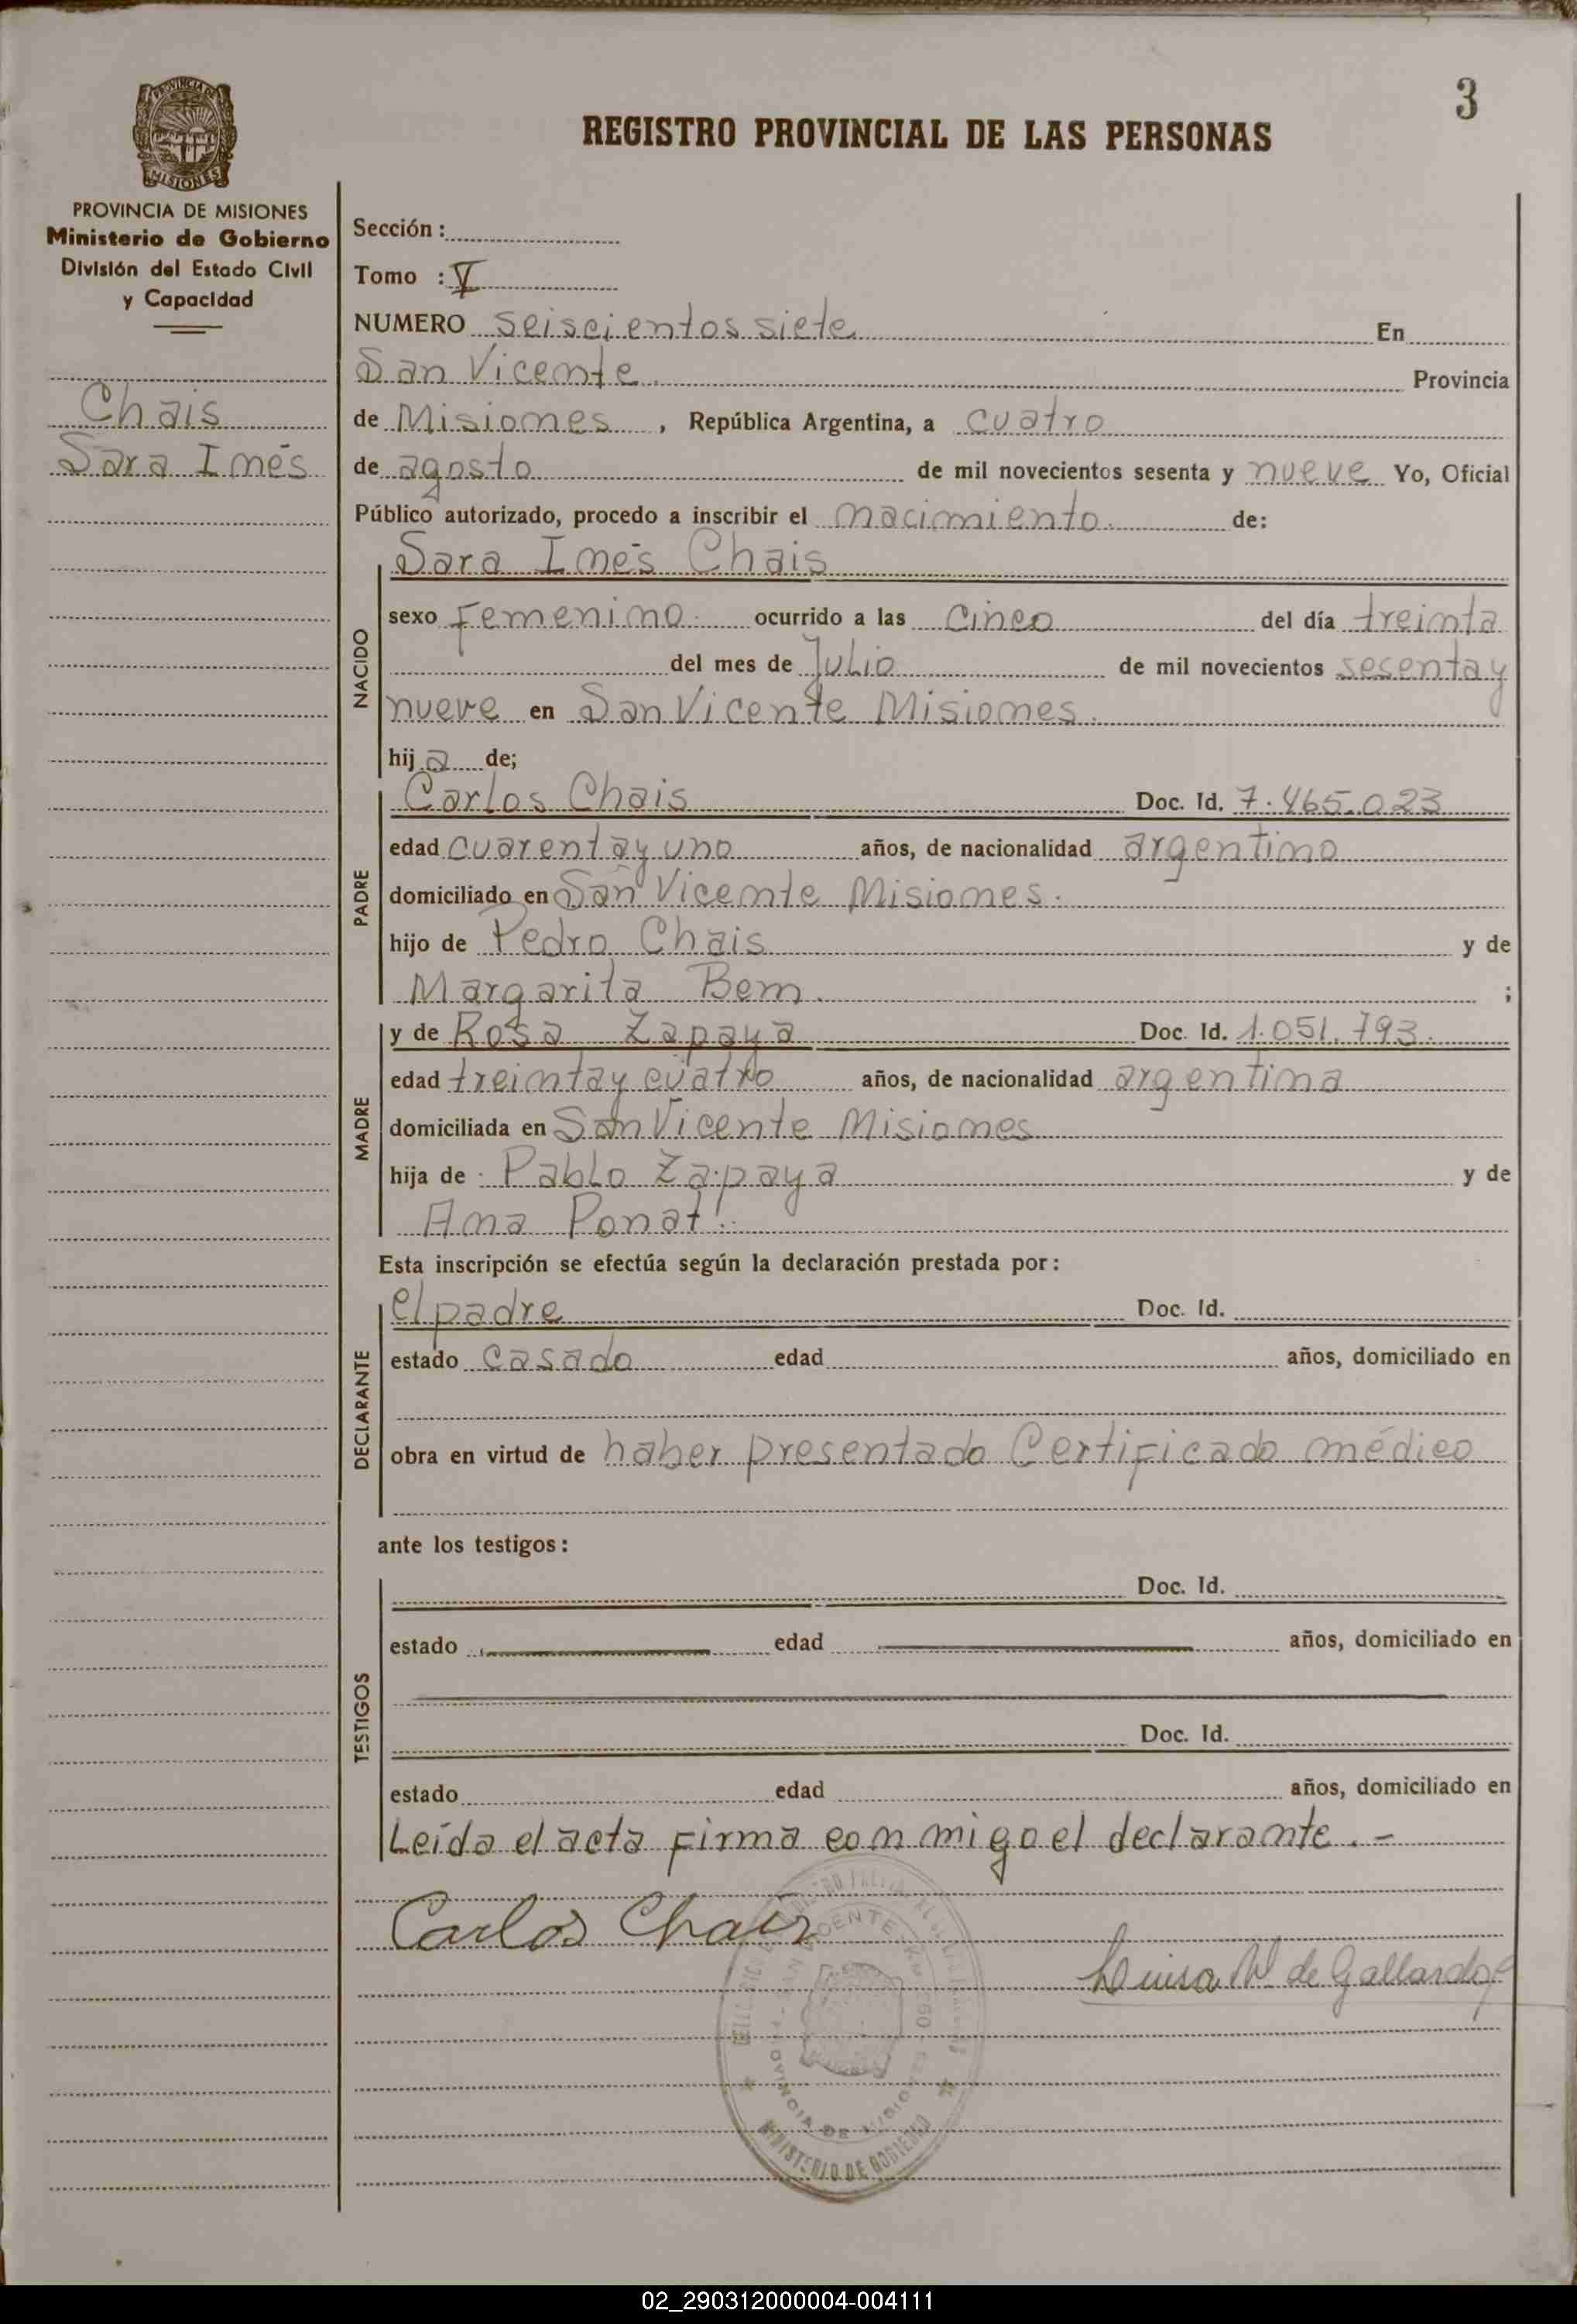 3
REGISTRO PROVINCIAL DE LAS PERSONAS
MISIONES
PROVINCIA DE MISIONES
Ministerio de Gobierno
División del Estado Civil
y Capacidad
Chais
Sara Inés
Sección :
Tomo : V
NUMERO seiscientos siete En
San Vicente. Provincia
de Misiones , República Argentina, a cuatro
de agosto de mil novecientos sesenta y nueve Yo, Oficial
Público autorizado, procedo a inscribir el nacimiento. de:
NACIDO
Sara Inés Chais
sexo Femenino. ocurrido a las cinco del día treinta
del mes de Julio de mil novecientos sesenta y
nueve en San Vicente Misiones.
hija de;
PADRE
Carlos Chais Doc. Id. 7.465.023
edad cuarenta y uno años, de nacionalidad argentino
domiciliado en San Vicente Misiones.
hijo de Pedro Chais y de
Margarita Bem. ;
MADRE
y de Rosa Zapaya Doc. Id. 1.051.793.
edad treinta y cuatro años, de nacionalidad argentina
domiciliada en San Vicente Misiones
hija de Pablo Zapaya y de
Ana Ponat.
Esta inscripción se efectúa según la declaración prestada por:
DECLARANTE
el padre Doc. Id.
estado casado edad años, domiciliado en
obra en virtud de haber presentado Certificado médico
ante los testigos:
TESTIGOS
Doc. Id.
estado edad años, domiciliado en
Doc. Id.
estado edad años, domiciliado en
Leída el acta firma conmigo el declarante. -
Carlos Chais
Luisa de Gallardo
MINISTERIO DE GOBIERNO
02_290312000004-004111